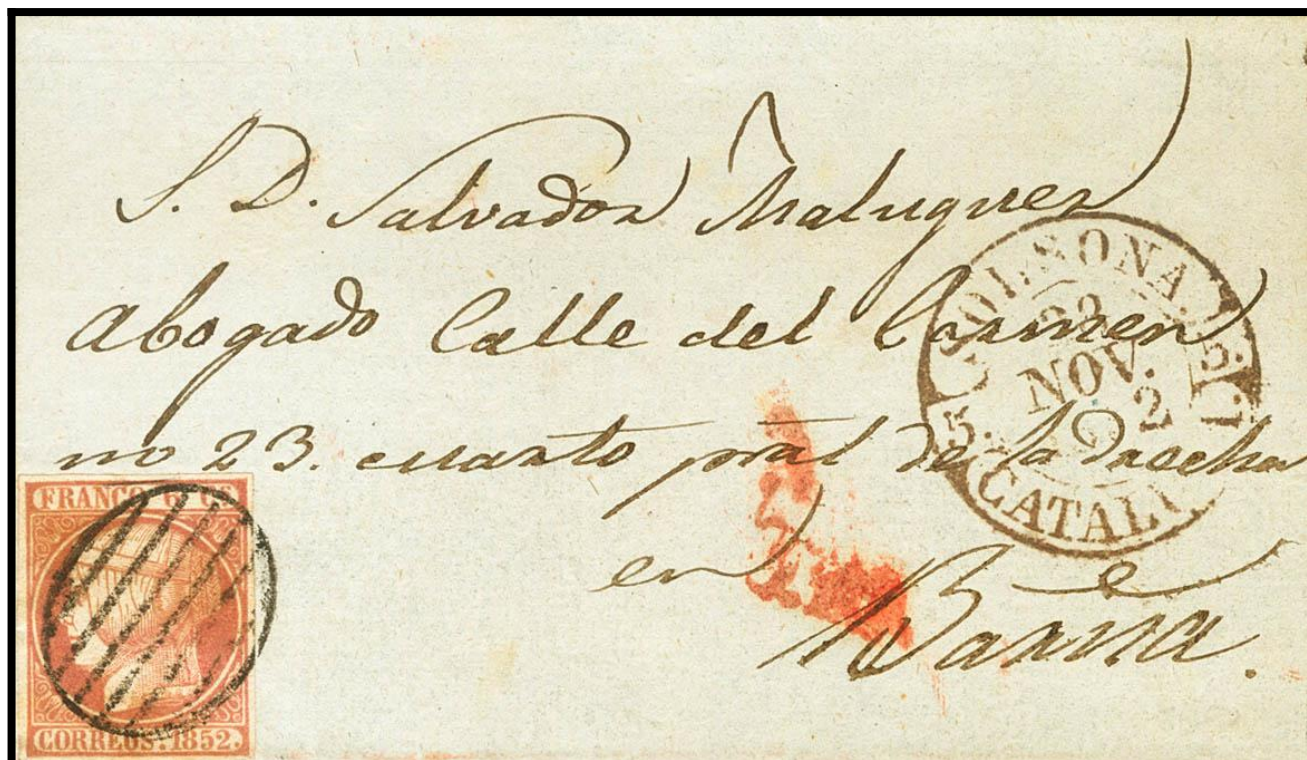 S. D. Salvador Maluquer
Abogado Calle del Carmen
no 23. cuarto pral de la drecha
en
Barna.
SOLSONA.
NOV.
CATALU
FRANCO. 6 CS
CORREOS. 1852.